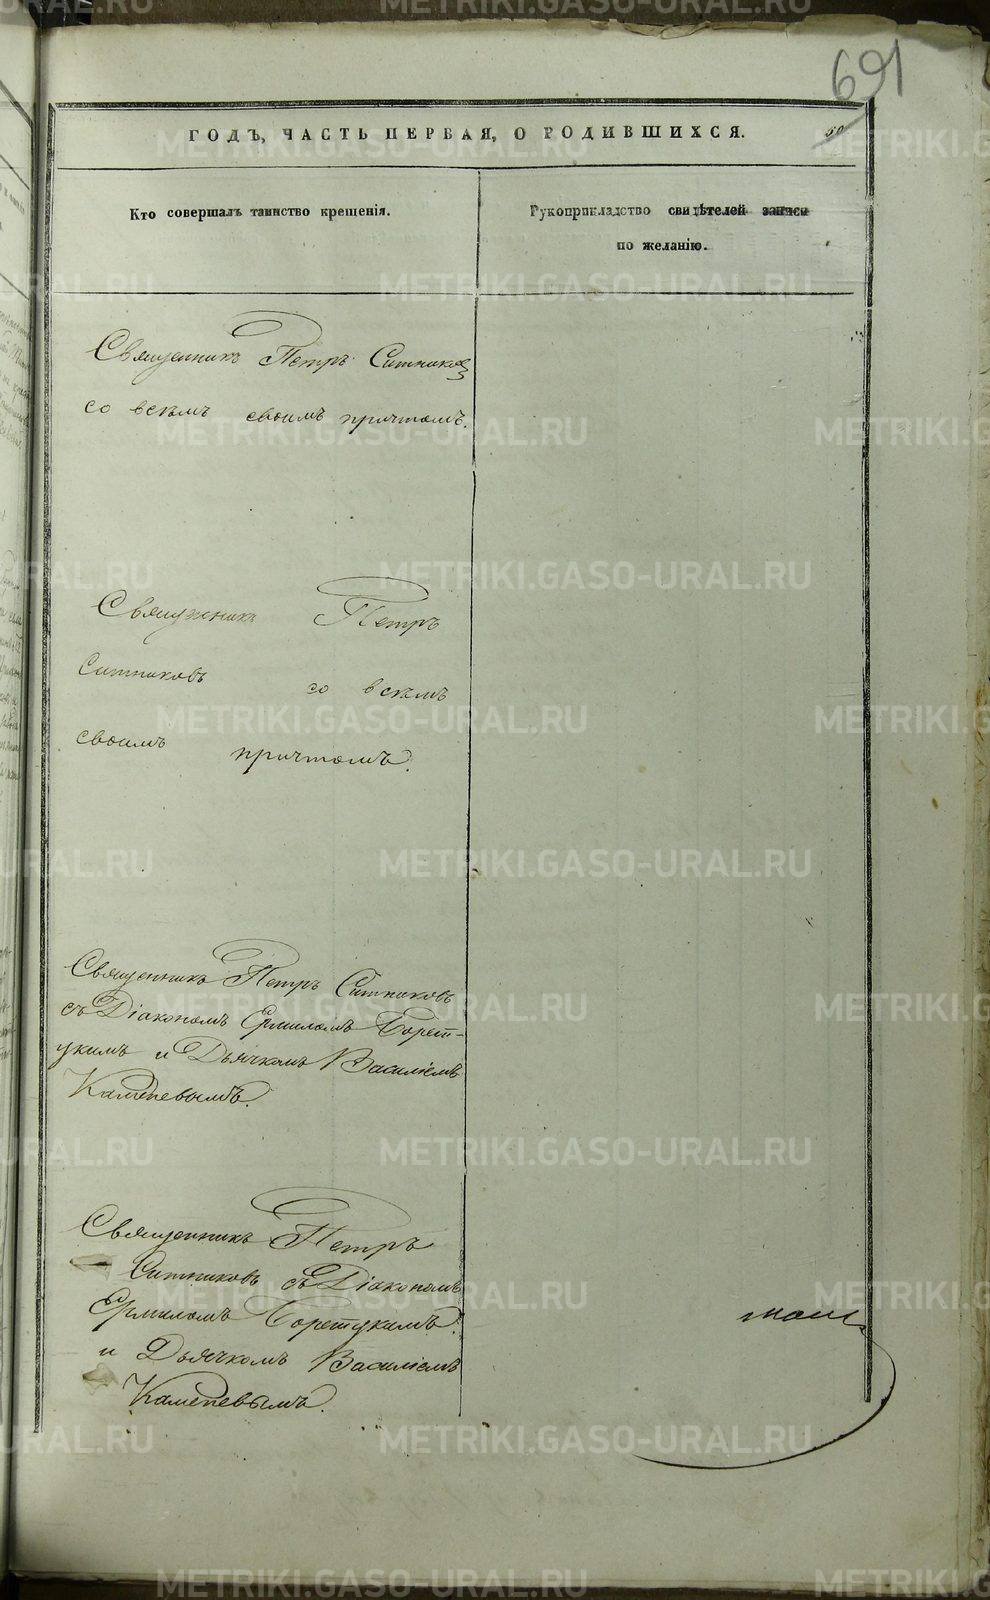 691
ГОДЪ, ЧАСТЬ ПЕРВАЯ, О РОДИВШИХСЯ.
Кто совершалъ таинство крещенія.
Рукоприкладство свидѣтелей записи
по желанію.
Священникъ Петръ Ситниковъ
со всѣмъ своимъ причтомъ.
Священникъ Петръ
Ситниковъ со всѣмъ
своимъ причтомъ.
Священникъ Петръ Ситниковъ
съ Діакономъ Ермиломъ Борет-
цкимъ и Дьячкомъ Василіемъ
Каменевымъ.
Священникъ Петръ
Ситниковъ съ Діакономъ
Ермиломъ Боретцкимъ
и Дьячкомъ Василіемъ
Каменевымъ.
METRIKI.GASO-URAL.RU